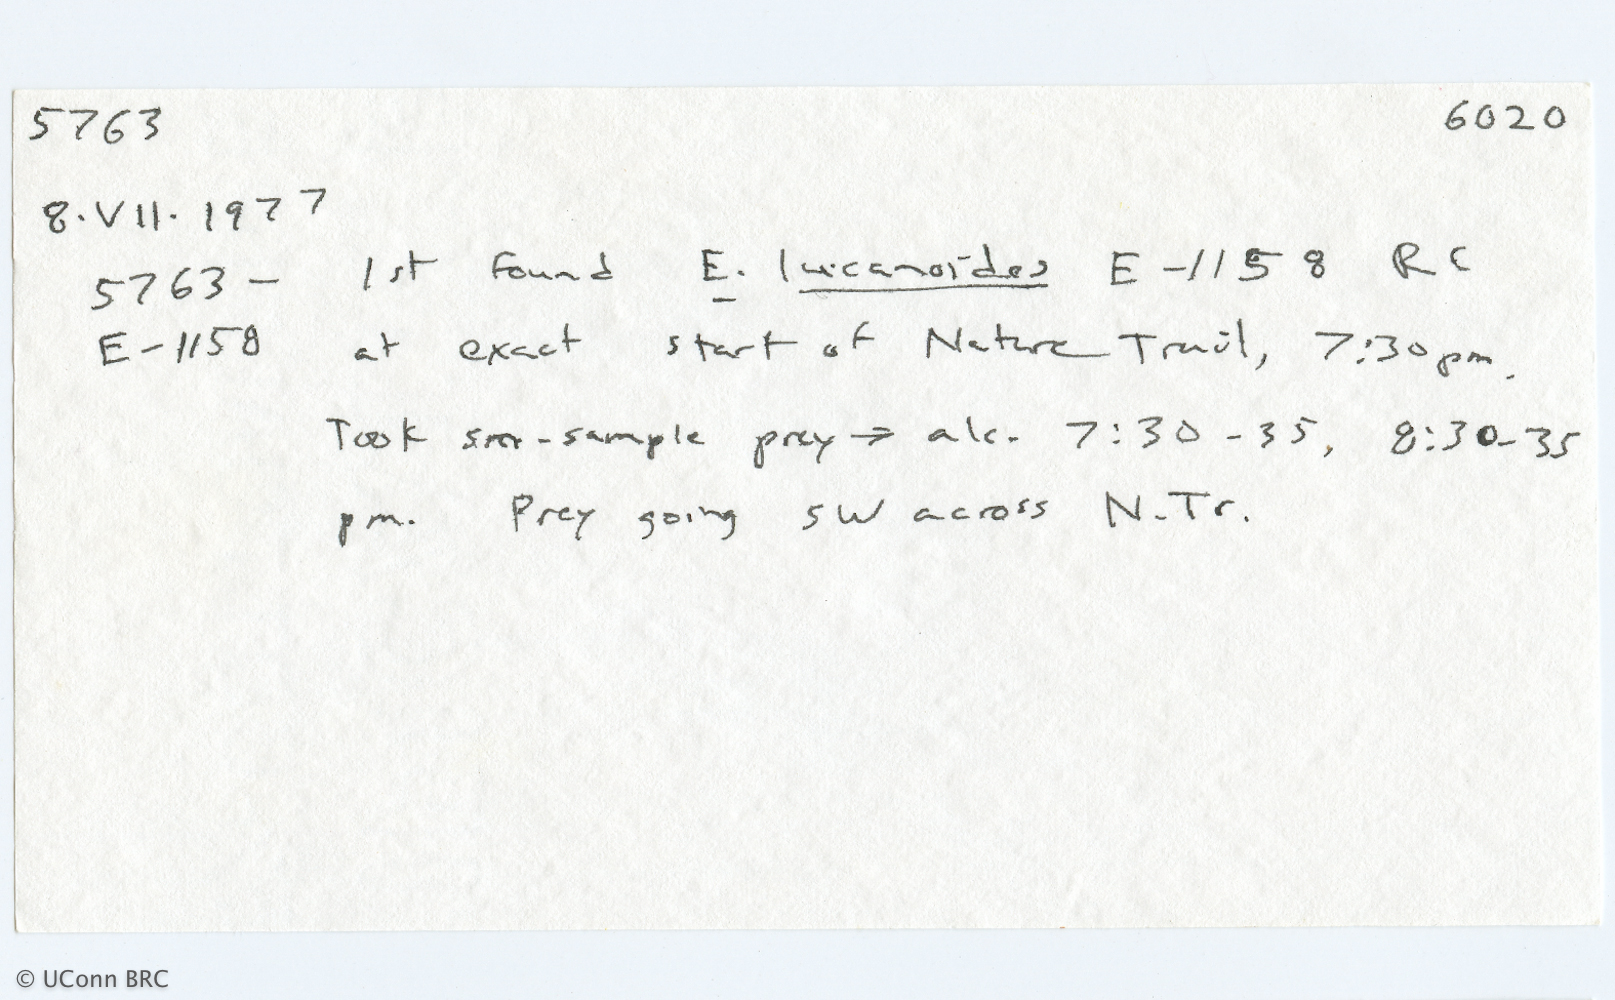 5763 6020
8.VII.1977
5763- 1st found E. lucanoides E-1158 RC
E-1158 at exact start of Nature Trail, 7:30pm.
Took -sample prey → alc. 7:30-35, 8:30-35
pm. Prey going SW across N.Tr.
© UConn BRC